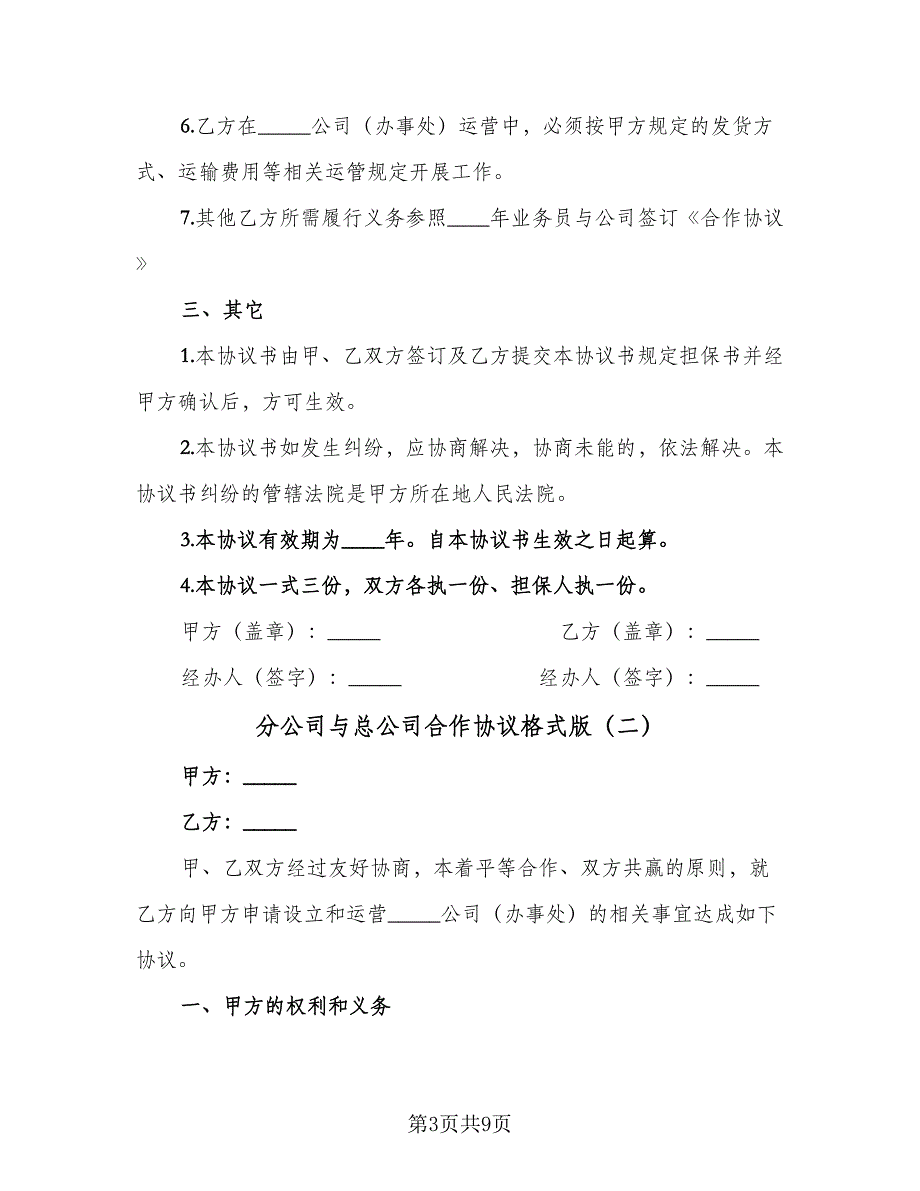 6.乙方在_____公司（办事处）运营中，必须按甲方规定的发货方
式、运输费用等相关运管规定开展工作。
7.其他乙方所需履行义务参照____年业务员与公司签订《合作协议
》
三、其它
1.本协议书由甲、乙双方签订及乙方提交本协议书规定担保书并经
甲方确认后，方可生效。
2.本协议书如发生纠纷，应协商解决，协商未能的，依法解决。本
协议书纠纷的管辖法院是甲方所在地人民法院。
3.本协议有效期为____年。自本协议书生效之日起算。
4.本协议一式三份，双方各执一份、担保人执一份。
甲方（盖章）：_____ 乙方（盖章）：_____
经办人（签字）：_____ 经办人（签字）：_____
分公司与总公司合作协议格式版（二）
甲方：_____
乙方：_____
甲、乙双方经过友好协商，本着平等合作、双方共赢的原则，就
乙方向甲方申请设立和运营_____公司（办事处）的相关事宜达成如下
协议。
一、甲方的权利和义务
第3页共9页